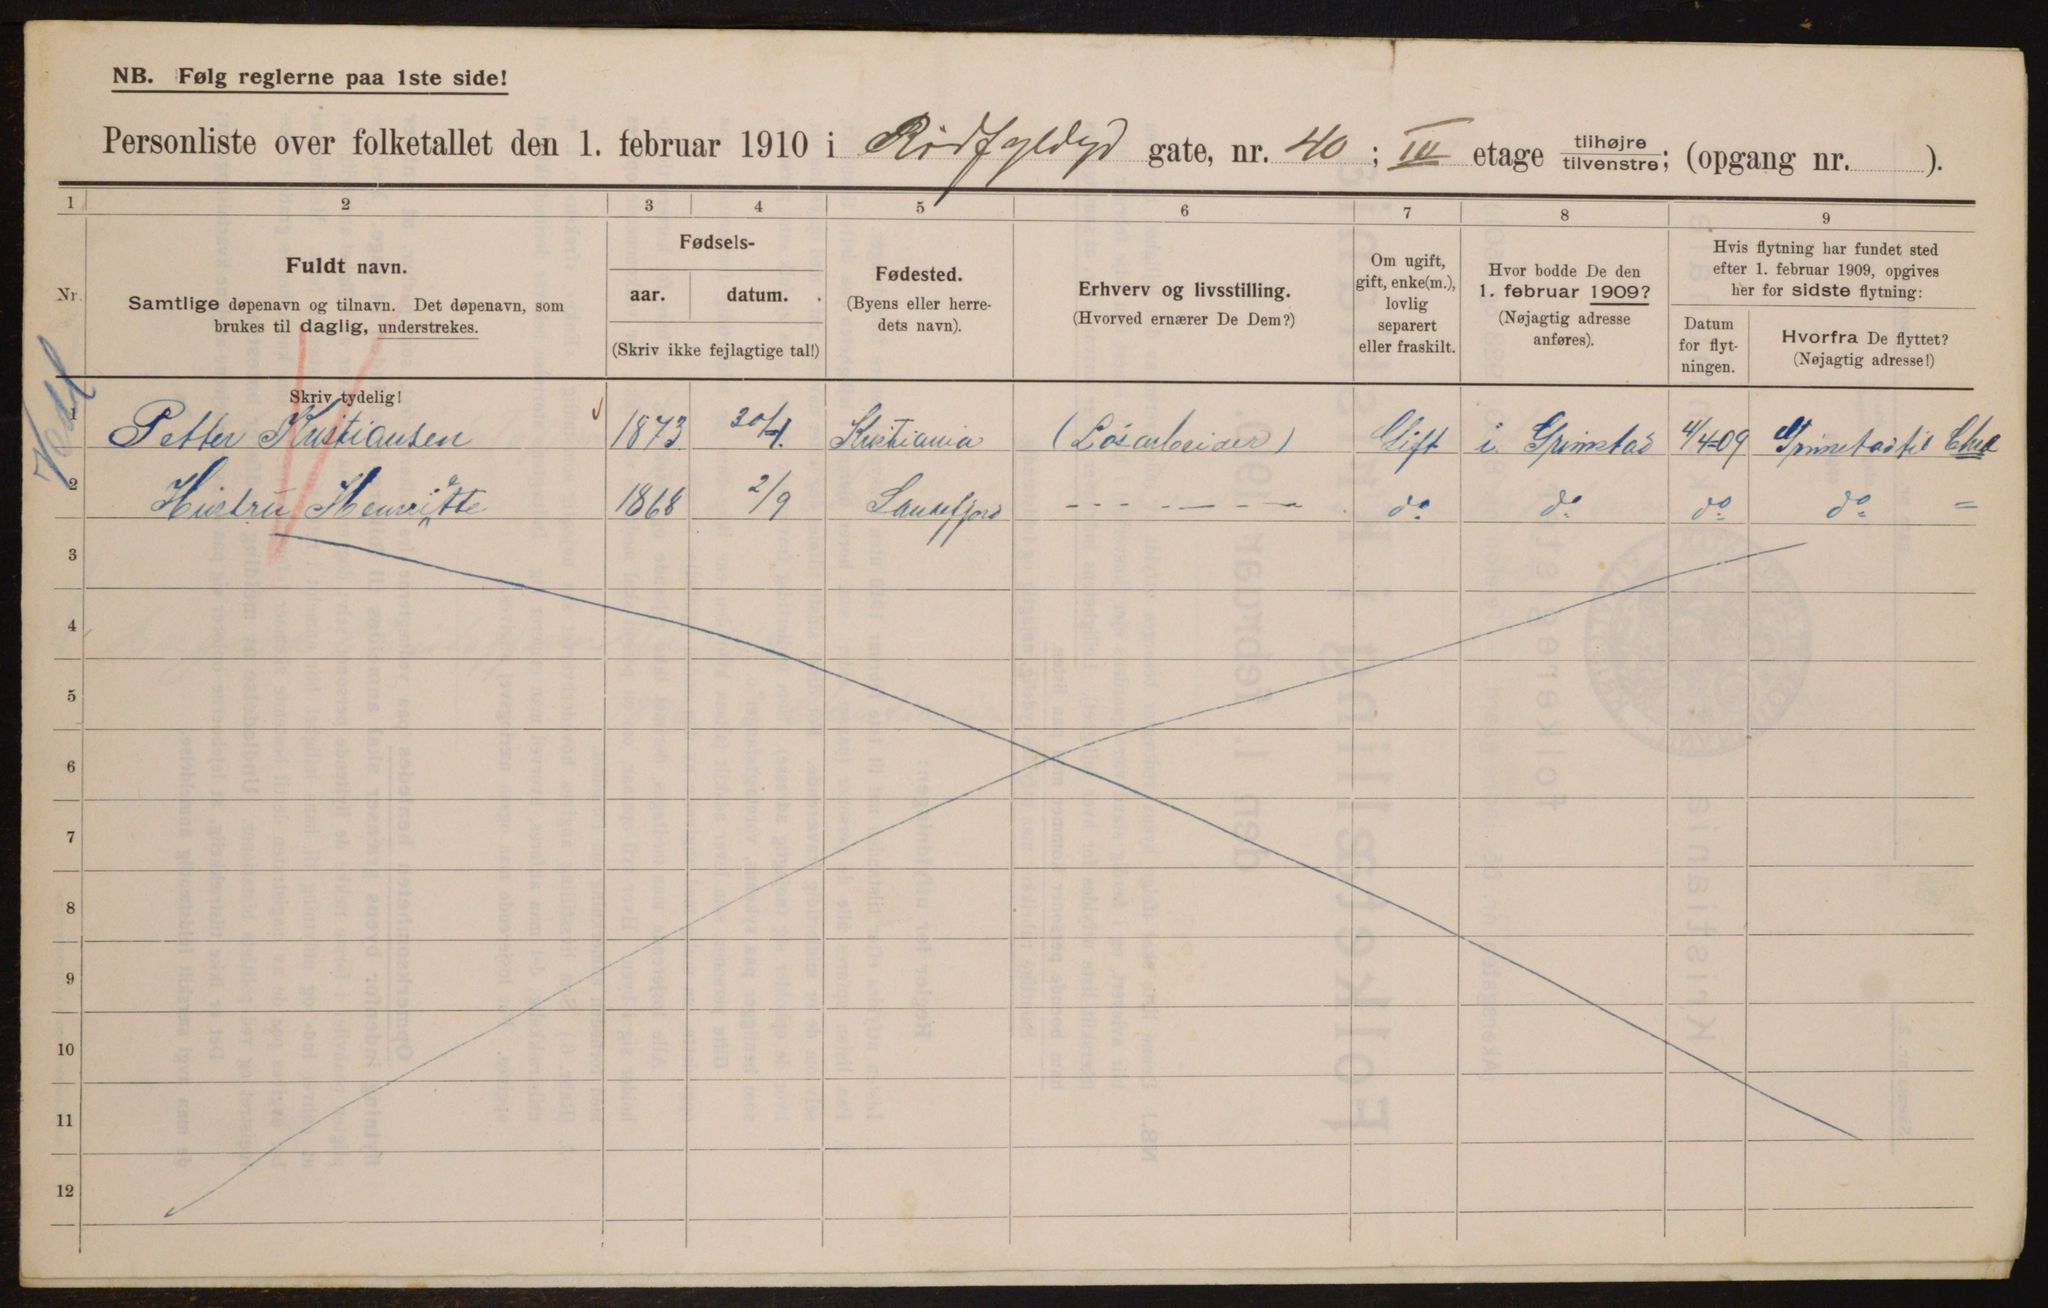 NB. Følg reglerne paa 1ste side!
Personliste over folketallet den 1. februar 1910 i Rødfyldgd gate, nr. 40; III etage tilhøjre tilvenstre; (opgang nr. ).
1 2 3 4 5 6 7 8 9
Nr.
Fuldt navn.
Samtlige døpenavn og tilnavn. Det døpenavn, som
brukes til daglig, understrekes.
Skriv tydelig!
Fødsels-
aar. datum.
(Skriv ikke fejlagtige tal!)
Fødested.
(Byens eller herre-
dets navn).
Erhverv og livsstilling.
(Hvorved ernærer De Dem?)
Om ugift,
gift, enke(m.),
lovlig
separert
eller fraskilt.
Hvor bodde De den
1. februar 1909?
(Nøjagtig adresse
anføres).
Hvis flytning har fundet sted
efter 1. februar 1909, opgives
her for sidste flytning:
Datum
for flyt-
ningen.
Hvorfra De flyttet?
(Nøjagtig adresse!)
1 Petter Kristiansen 1873 30/1 Kristiania (Løsarbeider) Gift i Grimstad 4/4-09 Grimstad til Chra
2 Hustru Henritte 1868 2/9 Sandefjord - - - - - - do do do do =
3
4
5
6
7
8
9
10
11
12